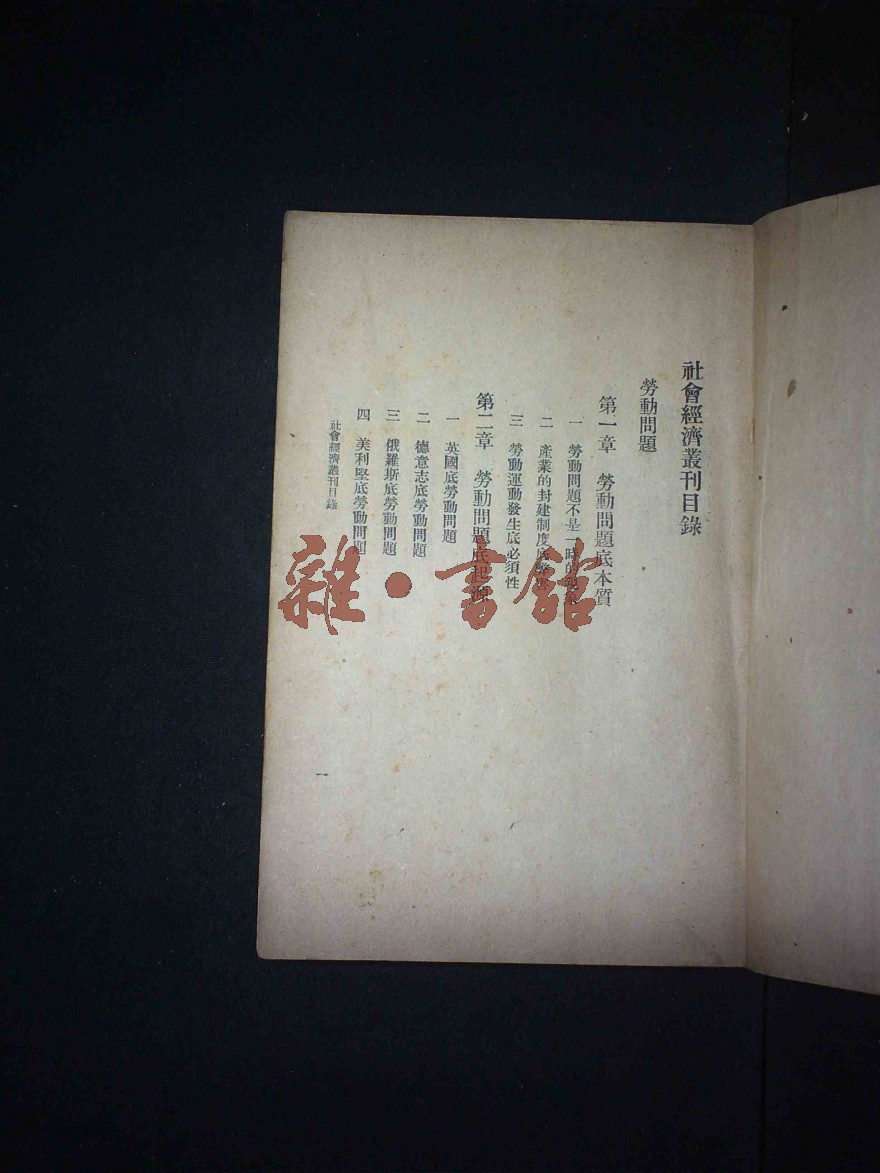 社會經濟叢刊目錄
勞動問題
第一章 勞動問題底本質
一 勞動問題不是一時的現象
二 產業的封建制度底
三 勞動運動發生底必須性
第二章 勞動問題底起源
一 英國底勞動問題
二 德意志底勞動問題
三 俄羅斯底勞動問題
四 美利堅底勞動問題
社會經濟叢刊目錄
一
雜·書館